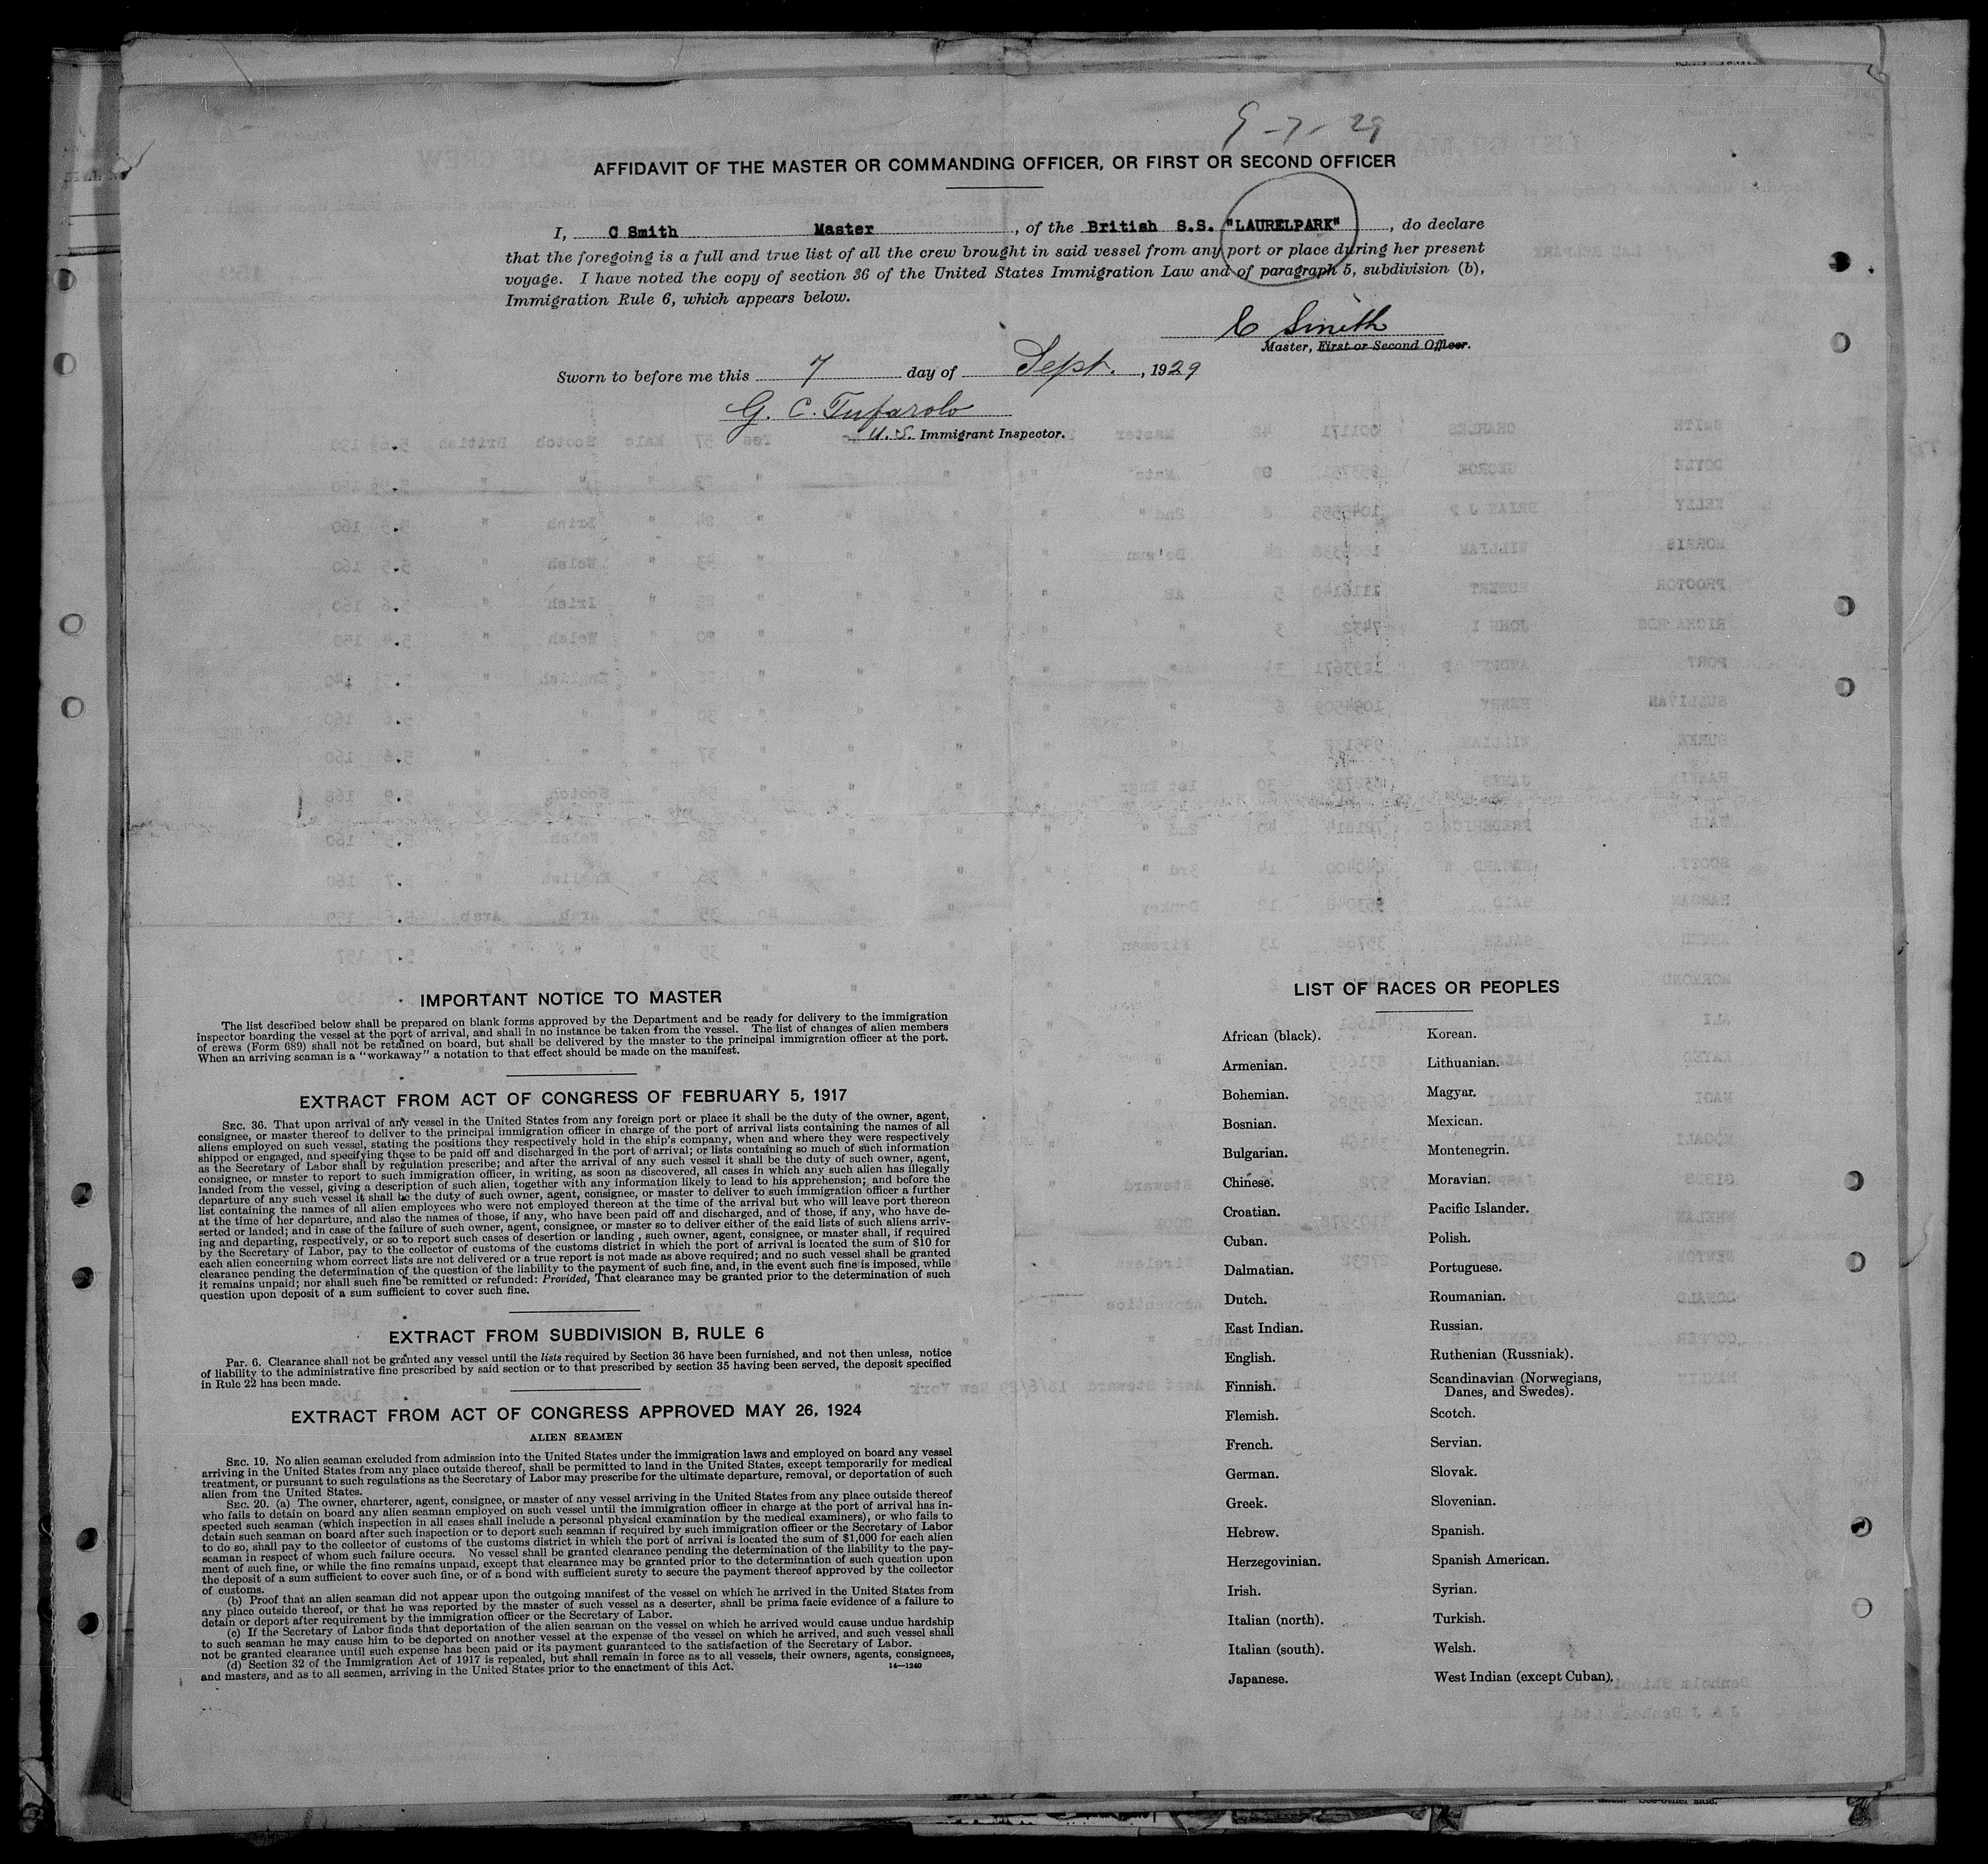 9-7-29
AFFIDAVIT OF THE MASTER OR COMMANDING OFFICER, OR FIRST OR SECOND OFFICER
I, C Smith Master, of the British S.S. "LAURELPARK", do declare
that the foregoing is a full and true list of all the crew brought in said vessel from any port or place during her present
voyage. I have noted the copy of section 36 of the United States Immigration Law and of paragraph 5, subdivision (b),
Immigration Rule 6, which appears below.
C Smith
Master, First or Second Officer.
Sworn to before me this 7 day of Sept., 1929
G. C. Tufarolo
U.S. Immigrant Inspector.
IMPORTANT NOTICE TO MASTER
The list described below shall be prepared on blank forms approved by the Department and be ready for delivery to the immigration
inspector boarding the vessel at the port of arrival, and shall in no instance be taken from the vessel. The list of changes of alien members
of crews (Form 689) shall not be retained on board, but shall be delivered by the master to the principal immigration officer at the port.
When an arriving seaman is a "workaway" a notation to that effect should be made on the manifest.
EXTRACT FROM ACT OF CONGRESS OF FEBRUARY 5, 1917
SEC. 36. That upon arrival of any vessel in the United States from any foreign port or place it shall be the duty of the owner, agent,
consignee, or master thereof to deliver to the principal immigration officer in charge of the port of arrival lists containing the names of all
aliens employed on such vessel, stating the positions they respectively hold in the ship's company, when and where they were respectively
shipped or engaged, and specifying those to be paid off and discharged in the port of arrival; or lists containing so much of such information
as the Secretary of Labor shall by regulation prescribe; and after the arrival of any such vessel it shall be the duty of such owner, agent,
consignee, or master to report to such immigration officer, in writing, as soon as discovered, all cases in which any such alien has illegally
landed from the vessel, giving a description of such alien, together with any information likely to lead to his apprehension; and before the
departure of any such vessel it shall be the duty of such owner, agent, consignee, or master to deliver to such immigration officer a further
list containing the names of all alien employees who were not employed thereon at the time of the arrival but who will leave port thereon
at the time of her departure, and also the names of those, if any, who have been paid off and discharged, and of those, if any, who have de-
serted or landed; and in case of the failure of such owner, agent, consignee, or master so to deliver either of the said lists of such aliens arriv-
ing and departing, respectively, or so to report such cases of desertion or landing , such owner, agent, consignee, or master shall, if required
by the Secretary of Labor, pay to the collector of customs of the customs district in which the port of arrival is located the sum of $10 for
each alien concerning whom correct lists are not delivered or a true report is not made as above required; and no such vessel shall be granted
clearance pending the determination of the question of the liability to the payment of such fine, and, in the event such fine is imposed, while
it remains unpaid; nor shall such fine be remitted or refunded: Provided, That clearance may be granted prior to the determination of such
question upon deposit of a sum sufficient to cover such fine.
EXTRACT FROM SUBDIVISION B, RULE 6
Par. 6. Clearance shall not be granted any vessel until the lists required by Section 36 have been furnished, and not then unless, notice
of liability to the administrative fine prescribed by said section or to that prescribed by section 35 having been served, the deposit specified
in Rule 22 has been made.
EXTRACT FROM ACT OF CONGRESS APPROVED MAY 26, 1924
ALIEN SEAMEN
SEC. 19. No alien seaman excluded from admission into the United States under the immigration laws and employed on board any vessel
arriving in the United States from any place outside thereof, shall be permitted to land in the United States, except temporarily for medical
treatment, or pursuant to such regulations as the Secretary of Labor may prescribe for the ultimate departure, removal, or deportation of such
alien from the United States.
SEC. 20. (a) The owner, charterer, agent, consignee, or master of any vessel arriving in the United States from any place outside thereof
who fails to detain on board any alien seaman employed on such vessel until the immigration officer in charge at the port of arrival has in-
spected such seaman (which inspection in all cases shall include a personal physical examination by the medical examiners), or who fails to
detain such seaman on board after such inspection or to deport such seaman if required by such immigration officer or the Secretary of Labor
to do so, shall pay to the collector of customs of the customs district in which the port of arrival is located the sum of $1,000 for each alien
seaman in respect of whom such failure occurs. No vessel shall be granted clearance pending the determination of the liability to the pay-
ment of such fine, or while the fine remains unpaid, except that clearance may be granted prior to the determination of such question upon
the deposit of a sum sufficient to cover such fine, or of a bond with sufficient surety to secure the payment thereof approved by the collector
of customs.
(b) Proof that an alien seaman did not appear upon the outgoing manifest of the vessel on which he arrived in the United States from
any place outside thereof, or that he was reported by the master of such vessel as a deserter, shall be prima facie evidence of a failure to
detain or deport after requirement by the immigration officer or the Secretary of Labor.
(c) If the Secretary of Labor finds that deportation of the alien seaman on the vessel on which he arrived would cause undue hardship
to such seaman he may cause him to be deported on another vessel at the expense of the vessel on which he arrived, and such vessel shall
not be granted clearance until such expense has been paid or its payment guaranteed to the satisfaction of the Secretary of Labor.
(d) Section 32 of the Immigration Act of 1917 is repealed, but shall remain in force as to all vessels, their owners, agents, consignees,
and masters, and as to all seamen, arriving in the United States prior to the enactment of this Act.
14—1240
LIST OF RACES OR PEOPLES
African (black).
Armenian.
Bohemian.
Bosnian.
Bulgarian.
Chinese.
Croatian.
Cuban.
Dalmatian.
Dutch.
East Indian.
English.
Finnish.
Flemish.
French.
German.
Greek.
Hebrew.
Herzegovinian.
Irish.
Italian (north).
Italian (south).
Japanese.
Korean.
Lithuanian.
Magyar.
Mexican.
Montenegrin.
Moravian.
Pacific Islander.
Polish.
Portuguese.
Roumanian.
Russian.
Ruthenian (Russniak).
Scandinavian (Norwegians,
Danes, and Swedes).
Scotch.
Servian.
Slovak.
Slovenian.
Spanish.
Spanish American.
Syrian.
Turkish.
Welsh.
West Indian (except Cuban).